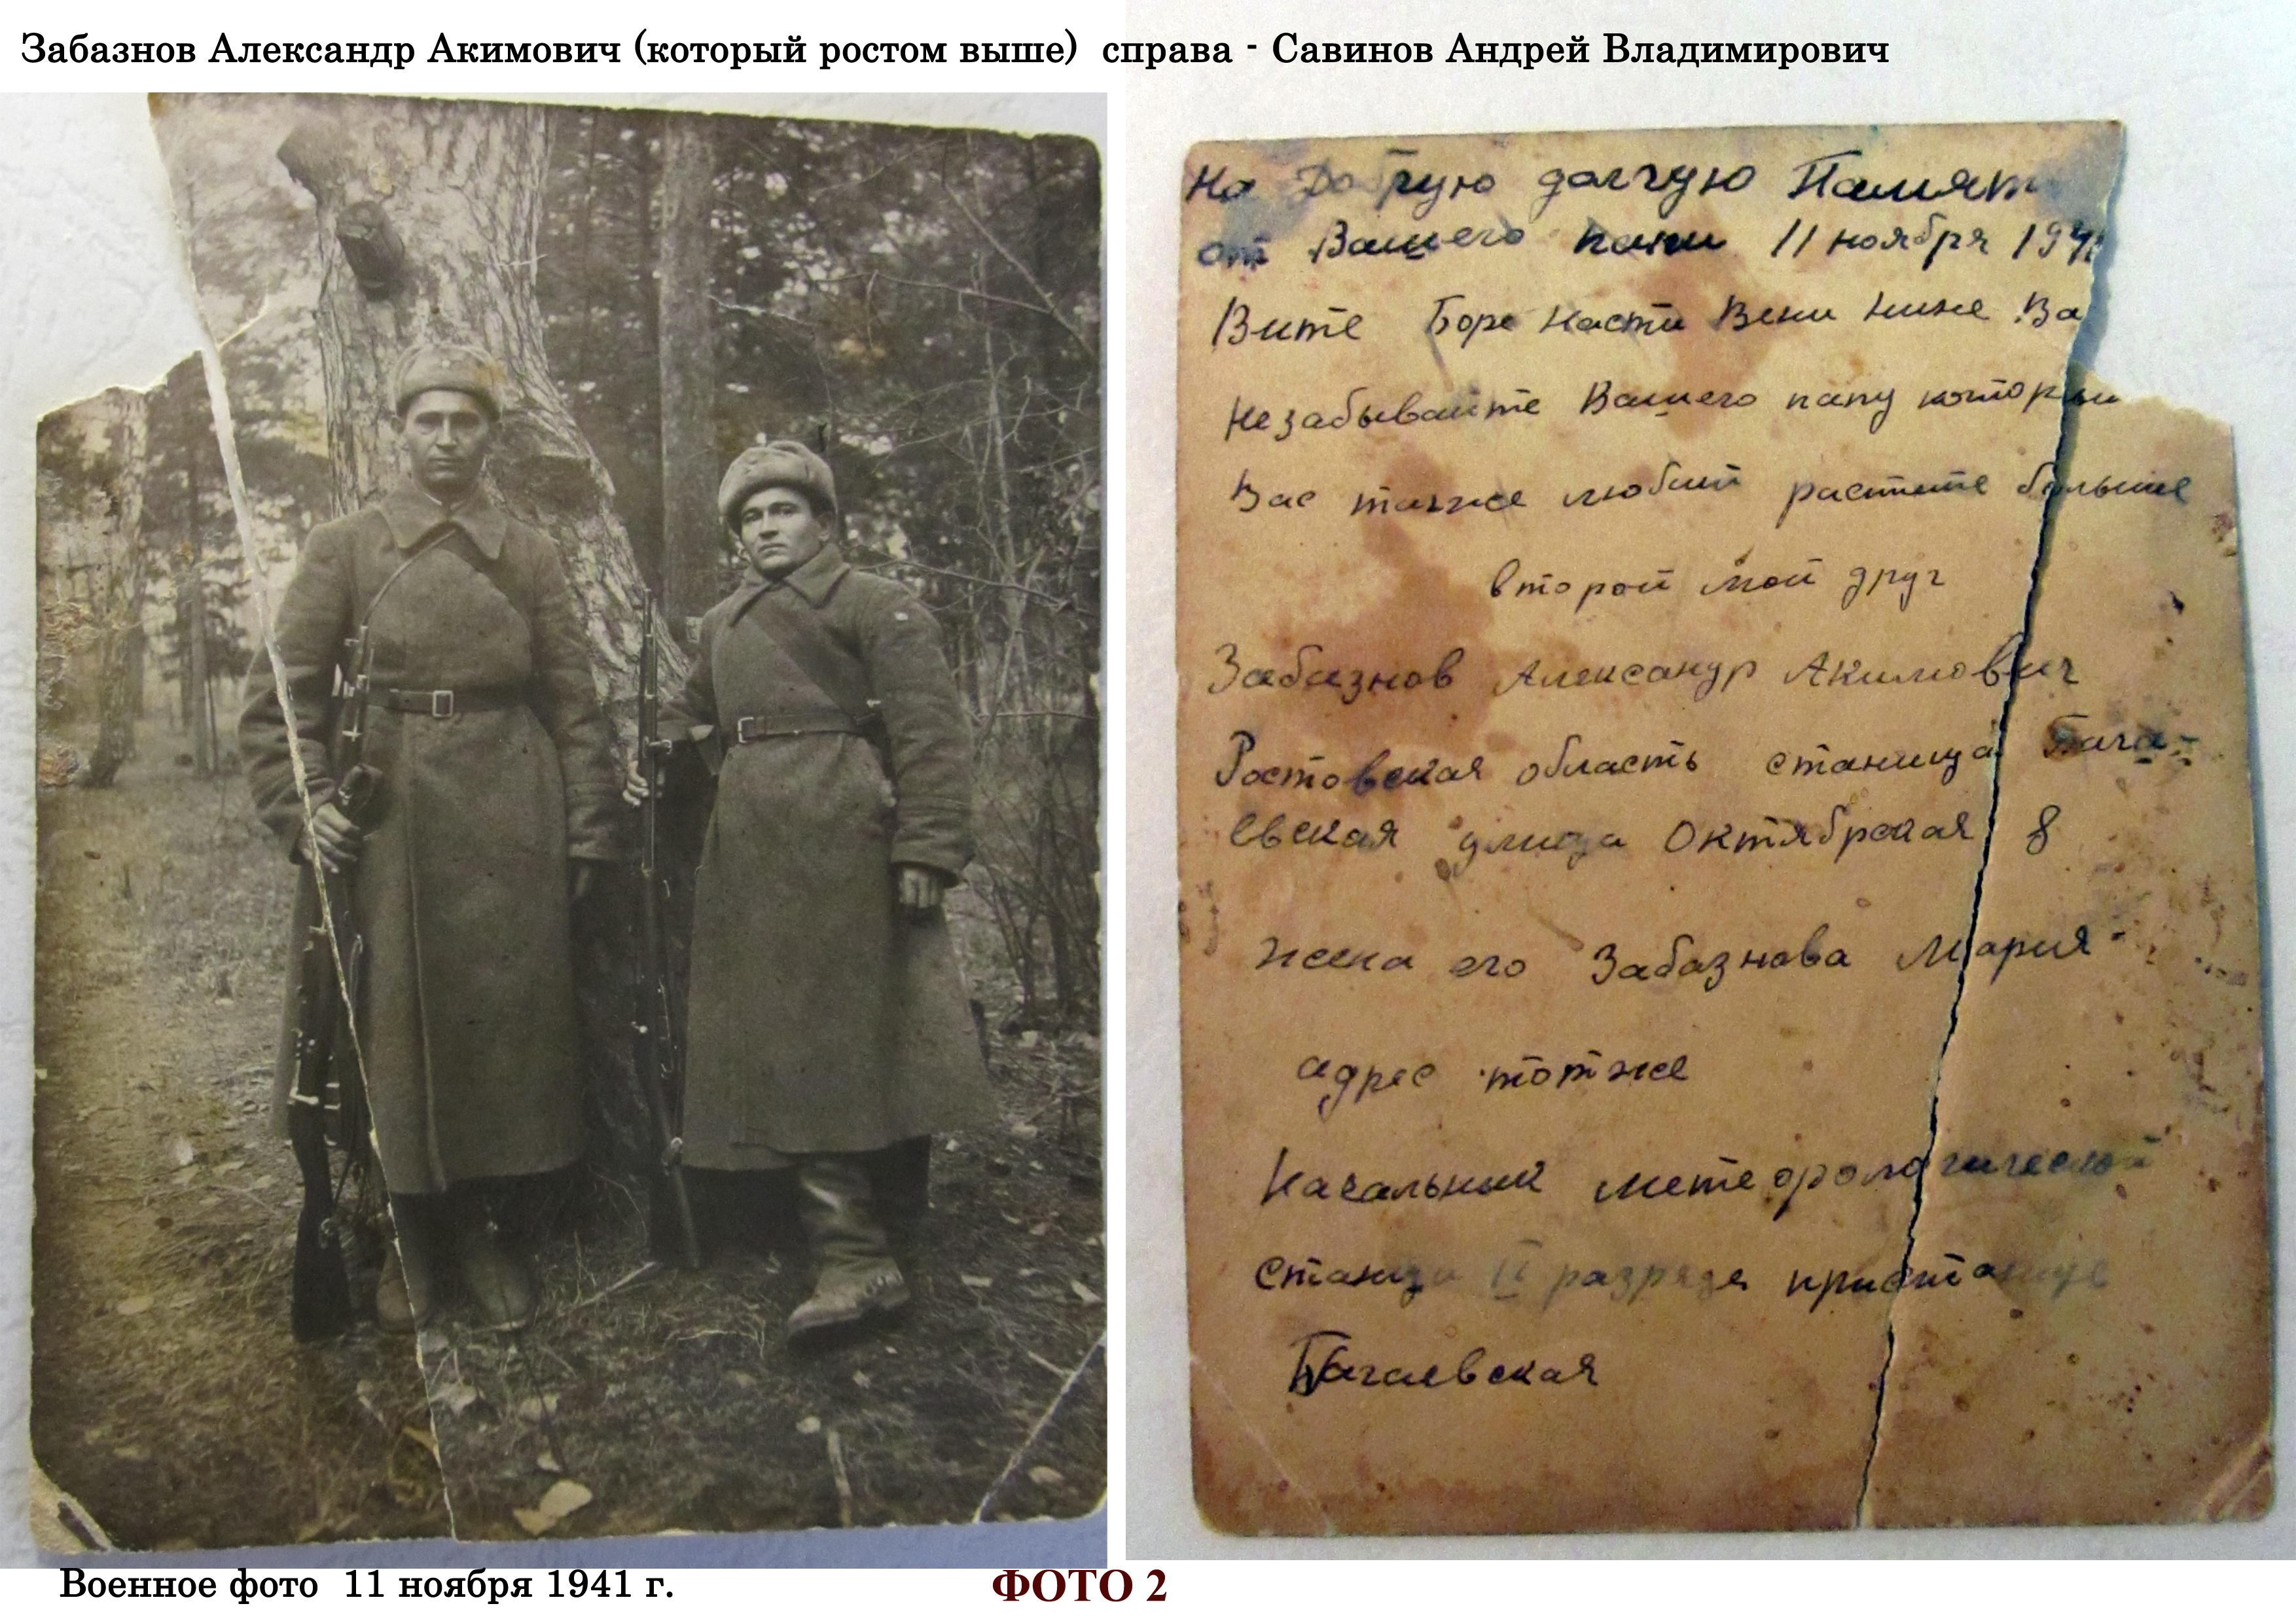 Забазнов Александр Акимович (который ростом выше) справа - Савинов Андрей Владимирович
На Добрую долгую Памят
от Вашего папи 11 ноября 194
Вите Боре Насти Вени Нине Ва
Незабывайте Вашего папу которы
Вас также любит растите больше
второй мой друг
Забазнов Александр Акимович
Ростовская область станица Бага-
евская улица Октябрская 8
жена его Забазнова Мария
адрес тотже
Начальник метеорологической
станци II разряда пристань
Багаевская
Военное фото 11 ноября 1941 г.
ФОТО 2